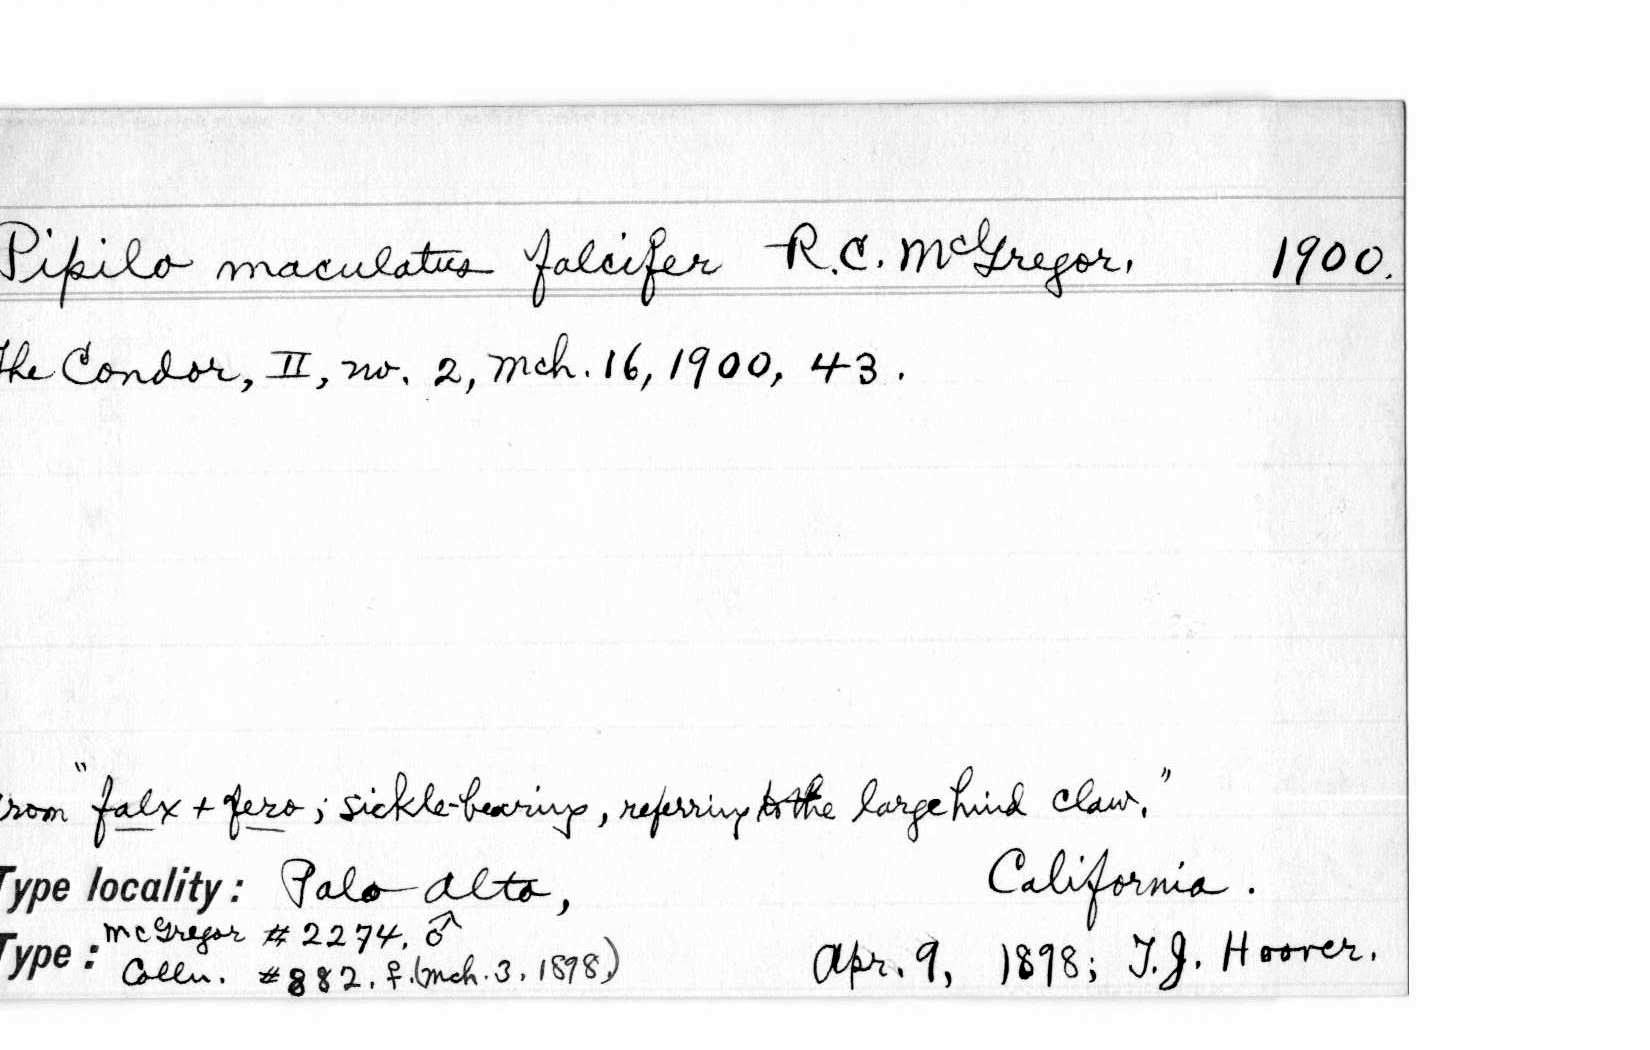 Pipilo maculatus falcifer R.C. McGregor. 1900.
The Condor, II, no. 2, Mch. 16, 1900, 43.
from "falx + fero; sickle-bearing, referring to the large hind claw."
Type locality: Palo Alto, California.
Type: McGregor #2274. ♂
Colln. #882. ♀. (Mch. 3, 1898.) Apr. 9, 1898; T.J. Hoover.